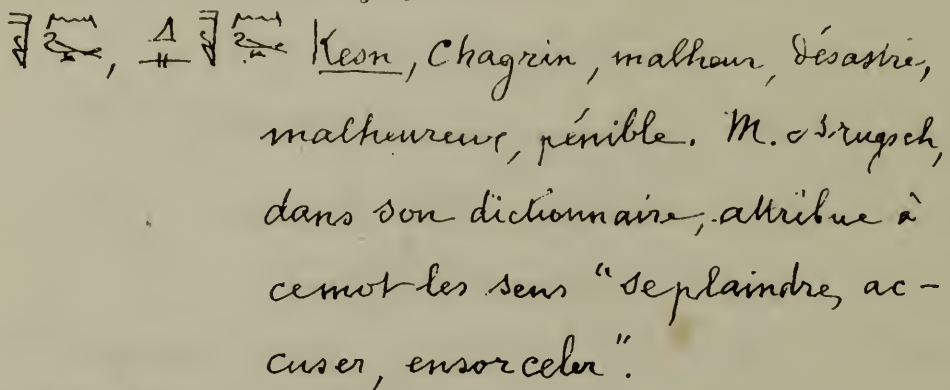 Kesn, Chagrin, malheur, désastre,
malheureux, pénible. M. Brugsch,
dans son dictionnaire, attribue à
ce mot les sens "se plaindre, ac-
cuser, ensorceler".